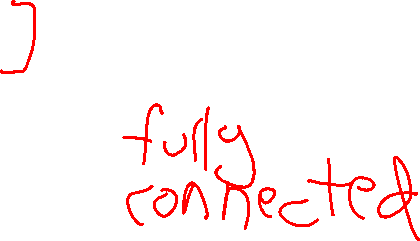 ]
fully
connected